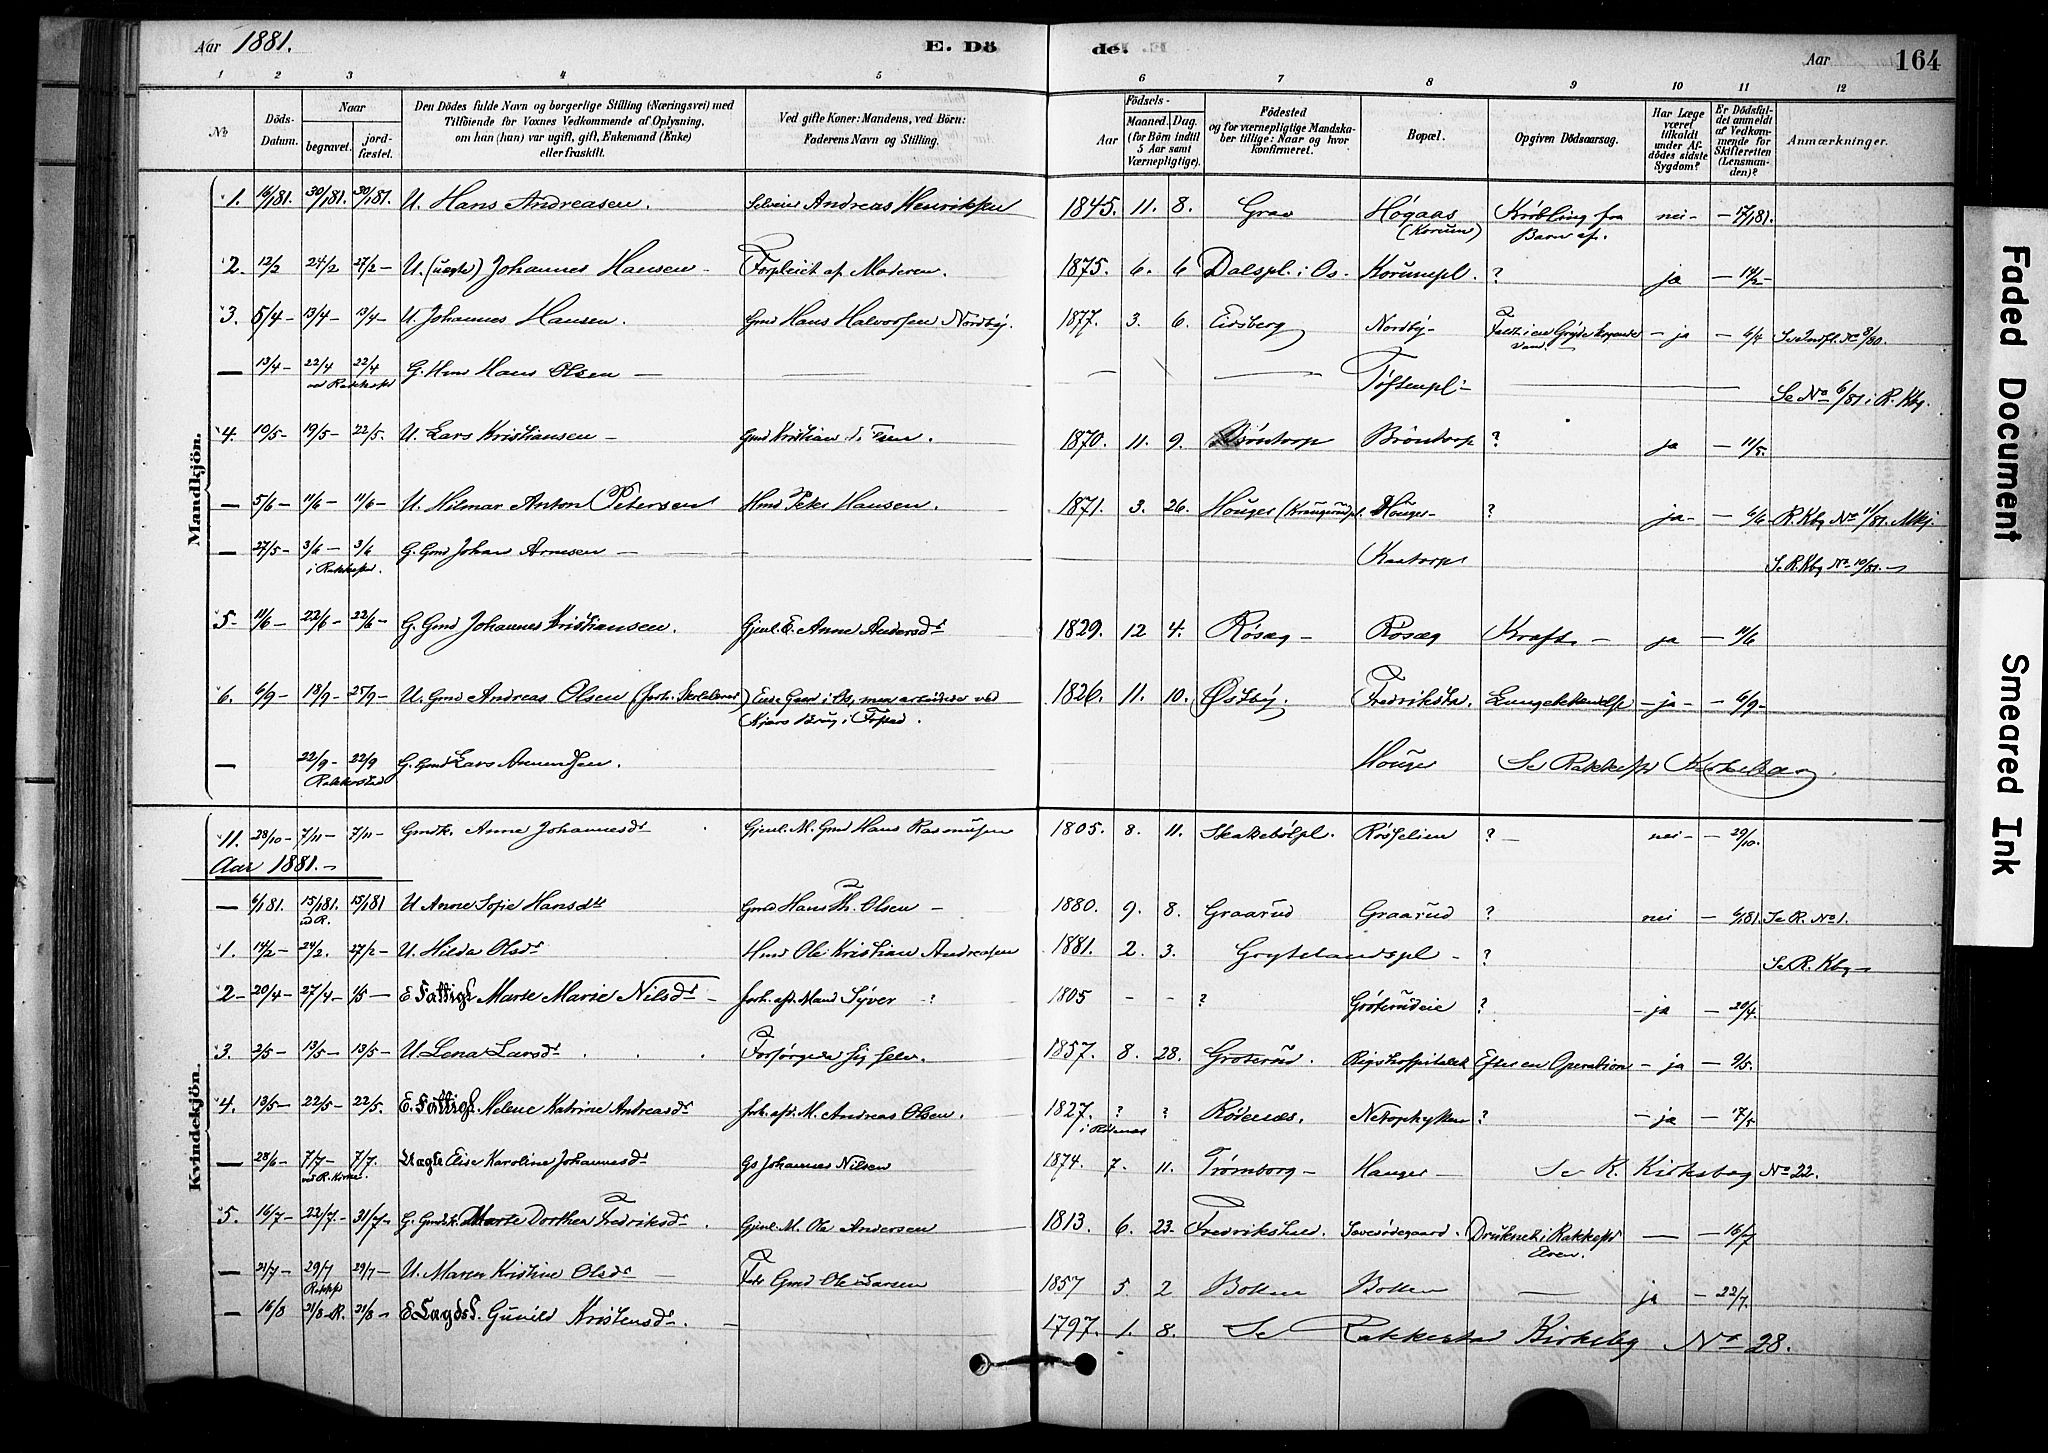 Aar 1881. E. Dö de. Aar 164
1 2 3 4 5 6 7 8 9 10 11 12
No Döds-Datum. Naar begravet. jord-fæstet. Den Dödes fulde Navn og borgerlige Stilling (Næringsvei) med Tilföiende for Voxnes Vedkommende af Oplysning, om han (hun) var ugift, gift, Enkemand (Enke) eller fraskilt. Ved gifte Koner: Mandens, ved Börn: Faderens Navn og Stilling. Aar Födsels-Maaned. Dag. (for Börn indtil 5 Aar samt Værnepligtige). Födested og for værnepligtige Mandskaber tillige: Naar og hvor konfirmeret. Bopæl. Opgiven Dödsaarsag. Har Læge været tilkaldt under Afdödes sidste Sygdom? Er Dödsfaldet anmeldt af Vedkommende for Skifteretten (Lensmanden)? Anmærkninger.
Mandkjön.
1. 16/1 81. 30/1 81. 30/1 81. U. Hans Andreasen. Andreas Henriksen 1845. 11. 8. Grav Högaas (Korum) Kröbling fra Barn af. nei - - 17/1 81.
2. 12/2 24/2 27/2 - U. (uægte) Johannes Hansen - Forpleiet af Moderen. 1875. 6. 6 Dalspl. i Os - Korumpl. ? ja - 14/2 -
3. 5/4 - 13/4 - 13/4 - U. Johannes Hansen. Gmd Hans Halvorsen Nordby. 1877. 3. 6. Eidsberg Nordby - Faldt i en Gryde kogende Vand. - - ja - 6/4 Se No 8/80.
— 13/4 - 22/4 22/4 ved Rakkest G. Hmd Hans Olsen — — — — Töftenpl - — Se No 6/81 i R. Kbg.
4. 10/5 - 19/5 - 22/5. U. Lars Kristiansen - Gmd Kristian Olsen. 1870. 11. 9. Bröntorp Bröntorp ? ja - 11/5.
— 5/6 - 11/6 11/6 - U. Hilmar Anton Petersen Hmd Peter Hansen. 1871. 3. 26. Houger Houger - ? ja - - 6/6 R. Kbg No 11/81. Mkj.
— 27/5 - 3/6 - 3/6 i Rakkestd. G. Gmd Johan Arnesen — Kaatorp Se R. Kbg No 10/81. -
5. 11/6 - 22/6 - 22/6 - G. Gmd Johannes Kristiansen. Gjenl. E. Anne Andersdr 1829. 12 4. Rösæg - Rösæg Kræft - ja - 11/6
6. 6/9 - 18/9 - 25/9 - U. Gmd Andreas Olsen (forh. Skolelærer) Eide Gaar i Os, men arbeidede ved Kjærs Brug i Frstad. 1826. 11. 10. Östby. Fredriksta. Lungebetændelse - ja - - 6/9 -
— 22/9 - 22/9 Rakkestad G. Gmd Lars Amundsen. Houger Se Rakkest Kirkebog.
11. 28/10 - 7/11 - 7/11 - Gmdk. Anne Johannesdr Gjenl. M. Gmd Hans Rasmusen 1805. 8. 11. Skakebölpl. Röselien ? - nei - - 29/10.
Aar 1881. -
Kvindekjön.
— 6/1 81. 15/1 81. 15/1 81 v R. U Anne Sofie Hansdtr Gmd Hans Th. Olsen - 1880. 9. 8. Graarud Graarud ? nei - 6/1 81. Se R. No 1.
1. 14/2 - 24/2. 27/2 - U. Hilda Olsdr Hmd Ole Kristian Andreasen 1881. 2. 3. Grytelandspl - ? Se R. Kbg -
2 - 20/4 - 27/4 - 15 - E Fattigl Marte Marie Nilsdr - forh. afd. Mand Syver - ? 1805 - - ? Gröterudeie ? - ja - 20/4.
3. 2/5 - 13/5 - 13/5 - U Lena Larsdr Forsörgede sig selv. 1857. 8. 28. Gröterud. Rigshospitalet Efter en Operation - ja - 9/5.
4. 13/5 - 22/5 - 22/5. E. Fattigl. Helene Katrine Andreasdr forh. afd. M. Andreas Olsen. 1827. i Rödenæs ? ? Rödenæs. ? - ja - 17/5
— 28/6 - 7/7 - 7/7. ved R. Kirke. Uægte Elise Karoline Johannesdr Gs Johannes Nilsen 1874. 7. 11. Trömborg - Hauger - Se R. Kirkebog No 22.
5. 16/7 - 22/7 - 31/7 - G. Gmdk. Marte Dorthea Fredriksdr. Gjenl. M. Ole Andersen 1813. 6. 23. Fredrikshald. Druknet i Rakkest Elven. — - 16/7
— 21/7 - 29/7 29/7 - Rakkst U. Maren Kristine Olsdr - Fdr Gmd Ole Larsen 1857 5 2 Botten Botten — ja - 22/7.
— 16/8 21/8 - R. 21/8 - E Lægdsl. Gunild Kristensdr. - 1797. 1. 8. Se Rakkestad Kirkebg No 28.
Faded Document
Smeared Ink